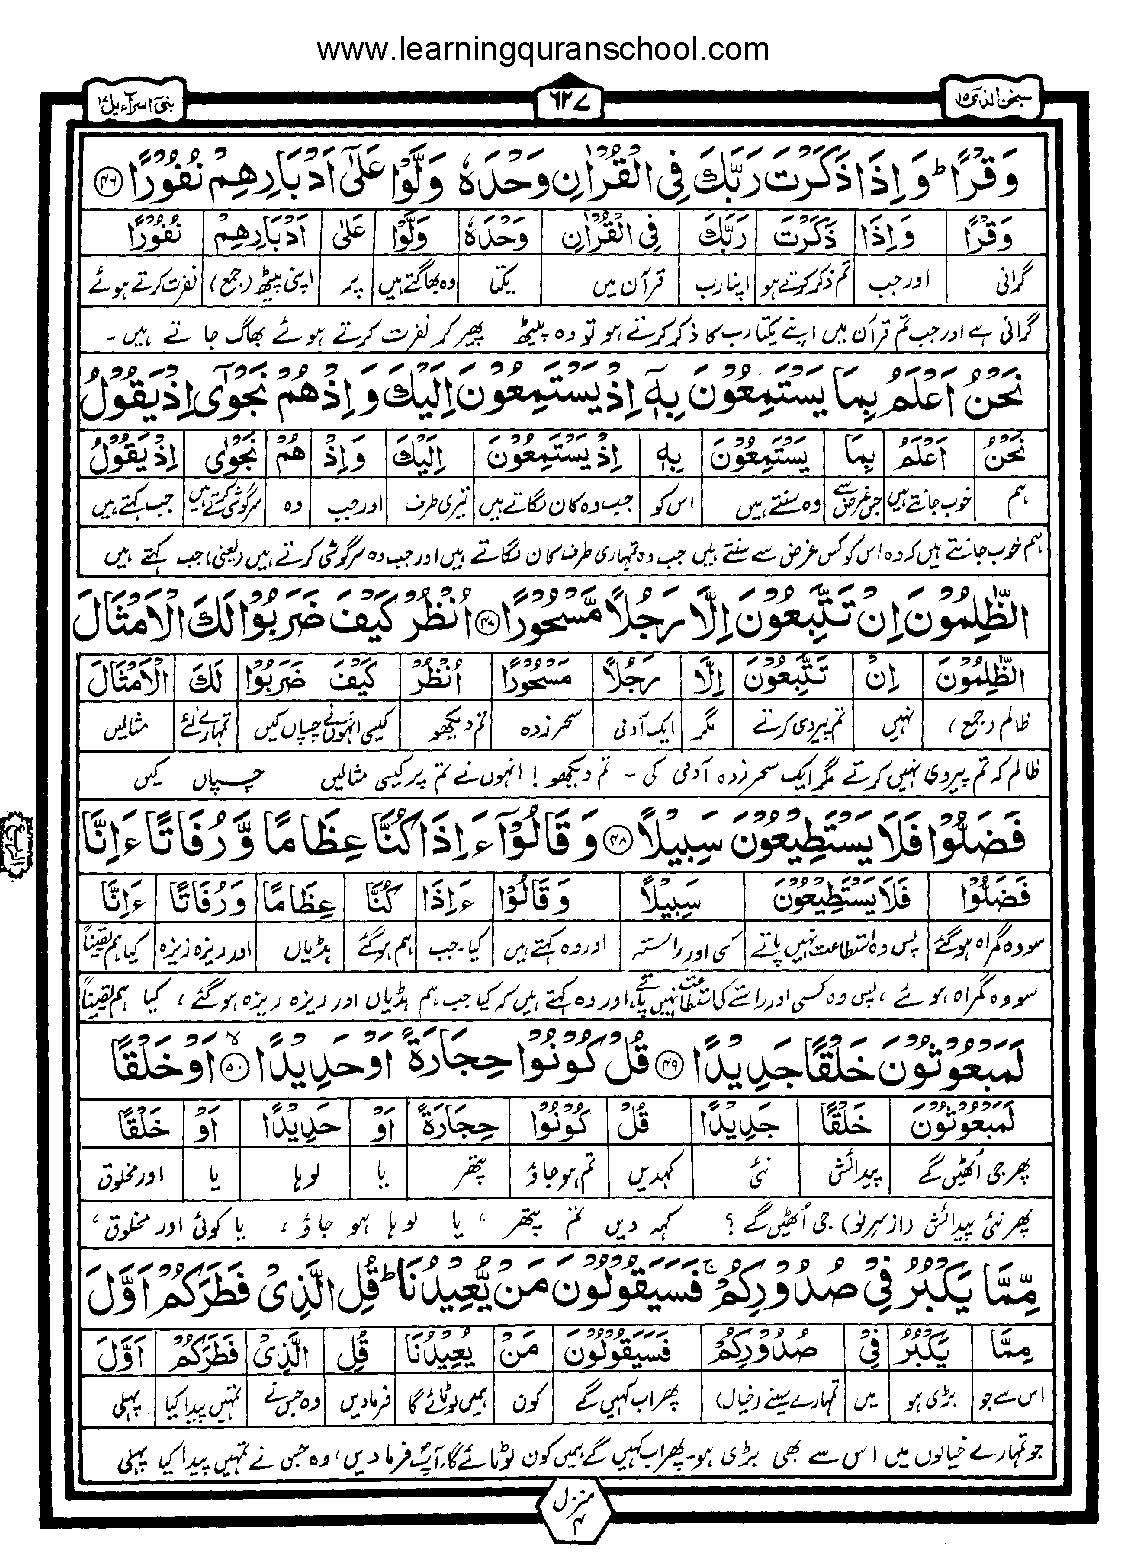 www.learningquranschool.com
سبحٰن الذی ۱۵
۶۲۷
بنی اسرآءیل ۱۷
وَقْرًا ؕ وَاِذَا ذَكَرْتَ رَبَّكَ فِی الْقُرْاٰنِ وَحْدَهٗ وَلَّوْا عَلٰۤی اَدْبَارِهِمْ نُفُوْرًا ﴿۴۶﴾
وَقْرًا وَاِذَا ذَكَرْتَ رَبَّكَ فِی الْقُرْاٰنِ وَحْدَهٗ وَلَّوْا عَلٰی اَدْبَارِهِمْ نُفُوْرًا
گرانی اور جب تم ذکر کرتے ہو اپنا رب قرآن میں یکتا وہ بھاگتے ہیں پر اپنی پیٹھ (جمع) نفرت کرتے ہوئے
گرانی ہے اور جب تم قرآن میں اپنے یکتا رب کا ذکر کرتے ہو تو وہ پیٹھ پھیر کر نفرت کرتے ہوئے بھاگ جاتے ہیں۔
نَحْنُ اَعْلَمُ بِمَا یَسْتَمِعُوْنَ بِهٖۤ اِذْ یَسْتَمِعُوْنَ اِلَیْكَ وَاِذْ هُمْ نَجْوٰۤی اِذْ یَقُوْلُ
نَحْنُ اَعْلَمُ بِمَا یَسْتَمِعُوْنَ بِهٖۤ اِذْ یَسْتَمِعُوْنَ اِلَیْكَ وَاِذْ هُمْ نَجْوٰی اِذْ یَقُوْلُ
ہم خوب جانتے ہیں جس غرض سے وہ سنتے ہیں اس کو جب وہ کان لگاتے ہیں تیری طرف اور جب وہ سرگوشی کرتے ہیں جب کہتے ہیں
ہم خوب جانتے ہیں کہ وہ اس کو کس غرض سے سنتے ہیں جب وہ تمہاری طرف کان لگاتے ہیں اور جب وہ سرگوشی کرتے ہیں (یعنی) جب کہتے ہیں
الظّٰلِمُوْنَ اِنْ تَتَّبِعُوْنَ اِلَّا رَجُلًا مَّسْحُوْرًا ﴿۴۷﴾ اُنْظُرْ كَیْفَ ضَرَبُوْا لَكَ الْاَمْثَالَ
الظّٰلِمُوْنَ اِنْ تَتَّبِعُوْنَ اِلَّا رَجُلًا مَّسْحُوْرًا اُنْظُرْ كَیْفَ ضَرَبُوْا لَكَ الْاَمْثَالَ
ظالم (جمع) نہیں تم پیروی کرتے مگر ایک آدمی سحر زدہ تم دیکھو کیسی انہوں نے چسپاں کیں تمہارے لئے مثالیں
ظالم کہ تم پیروی نہیں کرتے مگر ایک سحر زدہ آدمی کی۔ تم دیکھو! انہوں نے تم پر کیسی مثالیں چسپاں کیں
فَضَلُّوْا فَلَا یَسْتَطِیْعُوْنَ سَبِیْلًا ﴿۴۸﴾ وَقَالُوْۤا ءَاِذَا كُنَّا عِظَامًا وَّرُفَاتًا ءَاِنَّا
فَضَلُّوْا فَلَا یَسْتَطِیْعُوْنَ سَبِیْلًا وَقَالُوْا ءَاِذَا كُنَّا عِظَامًا وَرُفَاتًا ءَاِنَّا
سو وہ گمراہ ہوگئے پس وہ استطاعت نہیں پاتے کسی اور راستہ اور وہ کہتے ہیں کیا۔ جب ہم ہوگئے ہڈیاں اور ریزہ ریزہ کیا ہم یقیناً
سو وہ گمراہ ہوئے، پس وہ کسی اور راستے کا استطاعت نہیں پاتے، اور وہ کہتے ہیں کہ کیا جب ہم ہڈیاں اور ریزہ ریزہ ہوگئے، کیا ہم یقیناً
لَمَبْعُوْثُوْنَ خَلْقًا جَدِیْدًا ﴿۴۹﴾ قُلْ كُوْنُوْا حِجَارَةً اَوْ حَدِیْدًا ﴿۵۰﴾ۙ اَوْ خَلْقًا
لَمَبْعُوْثُوْنَ خَلْقًا جَدِیْدًا قُلْ كُوْنُوْا حِجَارَةً اَوْ حَدِیْدًا اَوْ خَلْقًا
پھر جی اُٹھیں گے پیدائش نئی کہدیں تم ہو جاؤ پتھر یا لوہا یا اور مخلوق
پھر نئی پیدائش (از سرِ نو) جی اُٹھیں گے؟ کہہ دیں تم پتھر، یا لوہا ہو جاؤ، یا کوئی اور مخلوق،
مِّمَّا یَكْبُرُ فِیْ صُدُوْرِكُمْ ۚ فَسَیَقُوْلُوْنَ مَنْ یُّعِیْدُنَا ؕ قُلِ الَّذِیْ فَطَرَكُمْ اَوَّلَ
مِّمَّا یَكْبُرُ فِیْ صُدُوْرِكُمْ فَسَیَقُوْلُوْنَ مَنْ یُعِیْدُنَا قُلِ الَّذِیْ فَطَرَكُمْ اَوَّلَ
اس سے جو بڑی ہو میں تمہارے سینے (خیال) پھر اب کہیں گے کون ہمیں لوٹائے گا فرمادیں وہ جس نے تمہیں پیدا کیا پہلی
جو تمہارے خیالوں میں اس سے بھی بڑی ہو۔ پھر اب کہیں گے ہمیں کون لوٹائے گا، آپؐ فرمادیں، وہ جس نے تمہیں پیدا کیا پہلی
منزل ۴